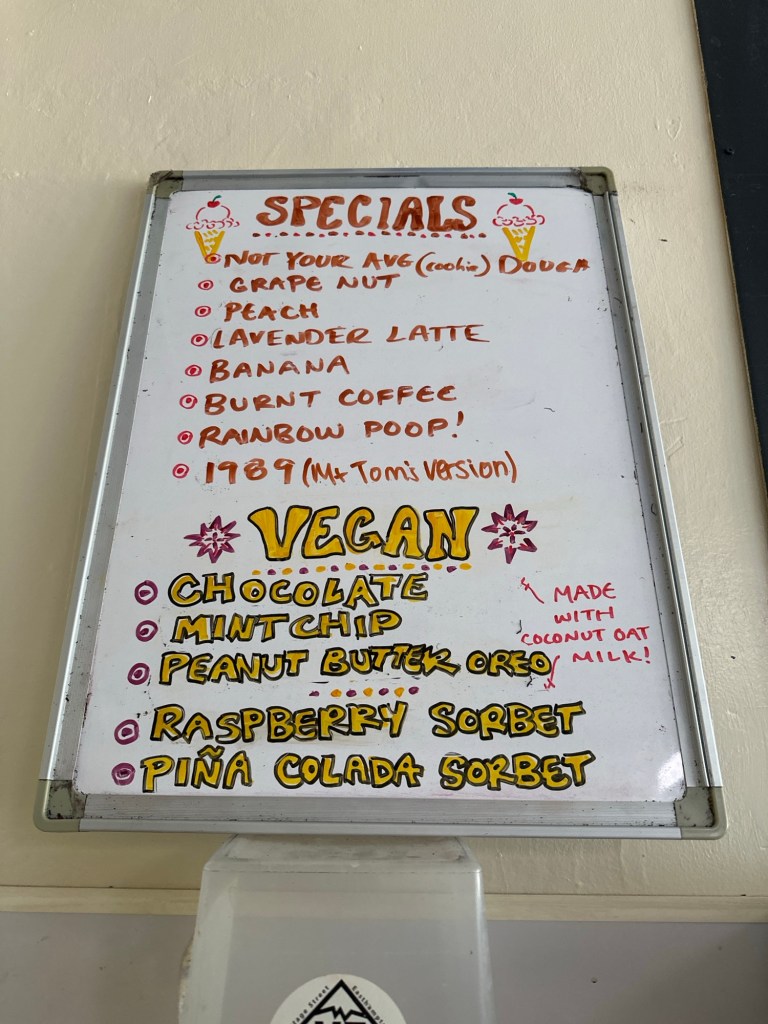 SPECIALS
NOT YOUR AVG (cookie) DOUGH
GRAPE NUT
PEACH
LAVENDER LATTE
BANANA
BURNT COFFEE
RAINBOW POOP!
1989 (Mt Tom's Version)
VEGAN
CHOCOLATE
MINT CHIP
PEANUT BUTTER OREO
MADE
WITH
COCONUT OAT
MILK!
RASPBERRY SORBET
PIÑA COLADA SORBET